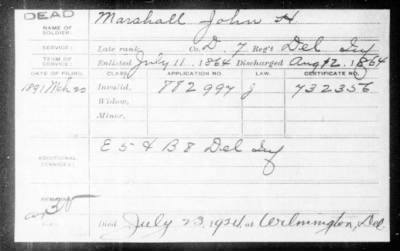 DEAD
NAME OF SOLDIER: Marshall John H
SERVICE: Late rank, Co. D, 7 Reg't Del Inf
TERM OF SERVICE: Enlisted July 11, 1864 Discharged Aug 12, 1864
DATE OF FILING. CLASS. APPLICATION NO. LAW. CERTIFICATE NO.
1891 Mch 20 Invalid, 882997 J 732356
Widow,
Minor,
ADDITIONAL SERVICES: E 5 & B 8 Del Inf
REMARKS:
Died July 23, 1924, at Wilmington, Del.